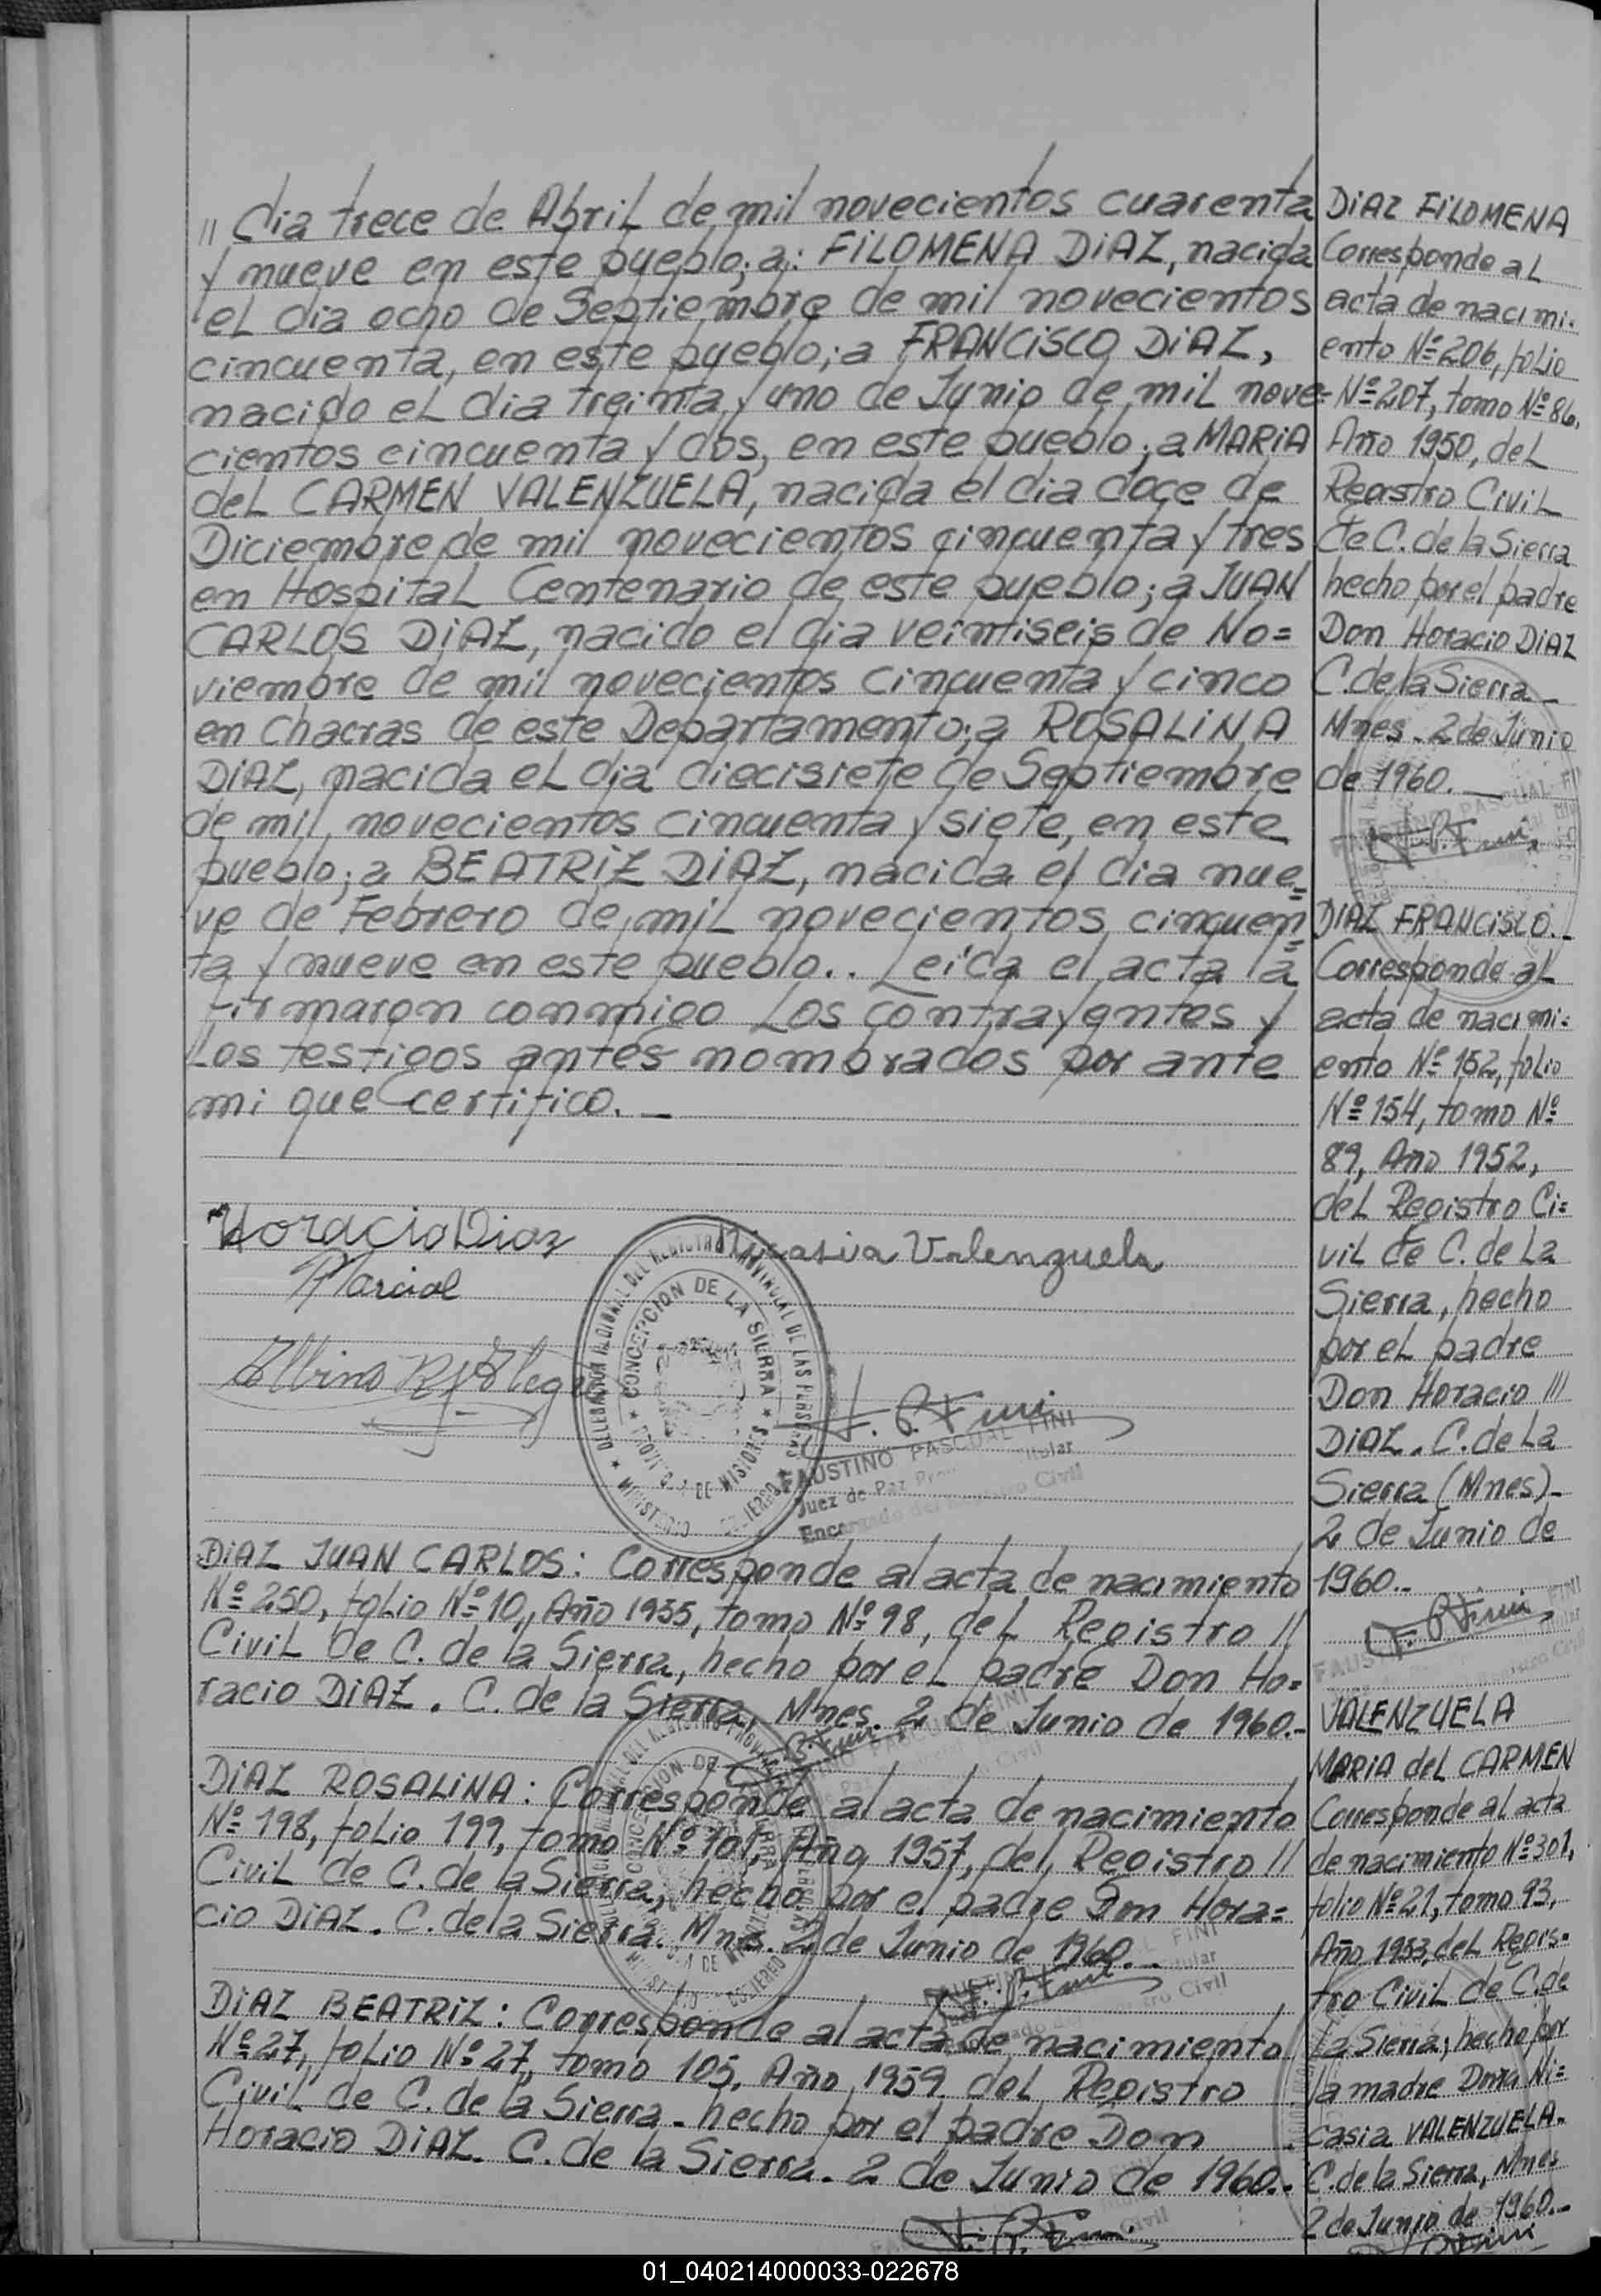 // dia trece de Abril de mil novecientos cuarenta
y nueve en este pueblo; a: FILOMENA DIAZ, nacida
el dia ocho de Septiembre de mil novecientos
cincuenta, en este pueblo; a FRANCISCO DIAZ,
nacido el dia treinta y uno de Junio de mil nove=
cientos cincuenta y dos, en este pueblo; a MARIA
del CARMEN VALENZUELA, nacida el dia doce de
Diciembre de mil novecientos cincuenta y tres
en Hospital Centenario de este pueblo; a JUAN
CARLOS DIAZ, nacido el dia veintiseis de No=
viembre de mil novecientos cincuenta y cinco
en Chacras de este Departamento; a ROSALINA
DIAZ, nacida el dia diecisiete de Septiembre
de mil novecientos cincuenta y siete, en este
pueblo; a BEATRIZ DIAZ, nacida el dia nue=
ve de Febrero de mil novecientos cincuen=
ta y nueve en este pueblo.. Leida el acta la
firmaron conmigo los contrayentes y
los testigos antes nombrados por ante
mi que certifico. _
Horacio Diaz
Nicasia Valenzuela
Marcial
Albino
F. P. Fini
DELEGACION REGIONAL DEL REGISTRO PROVINCIAL DE LAS PERSONAS
CONCEPCION DE LA SIERRA
DE MISIONES
MINISTERIO
FAUSTINO PASCUAL FINI
Juez de Paz Titular
Encargado del Registro Civil
DIAZ JUAN CARLOS: Corresponde al acta de nacimiento
Nº 250, folio Nº 10, Año 1955, tomo Nº 98, del Registro //
Civil de C. de la Sierra, hecho por el padre Don Ho=
racio DIAZ. C. de la Sierra, Mnes. 2 de Junio de 1960.-
F. P. Fini
DIAZ ROSALINA: Corresponde al acta de nacimiento
Nº 198, folio 199, tomo Nº 101, Año 1957, del Registro //
Civil de C. de la Sierra, hecho por el padre Don Hora=
cio DIAZ. C. de la Sierra. Mnes. 2 de Junio de 1960. -
F. P. Fini
DIAZ BEATRIZ: Corresponde al acta de nacimiento
Nº 27, folio Nº 27, tomo 105, Año 1959 del Registro
Civil de C. de la Sierra - hecho por el padre Don
Horacio DIAZ. C. de la Sierra. 2 de Junio de 1960.-
F. P. Fini
DIAZ FILOMENA
Corresponde al
acta de nacimi-
ento Nº 206, folio
Nº 207, tomo Nº 86,
Año 1950, del
Registro Civil
de C. de la Sierra
hecho por el padre
Don Horacio DIAZ
C. de la Sierra -
Mnes. 2 de Junio
de 1960. _
F. P. Fini
DIAZ FRANCISCO. -
Corresponde al
acta de nacimi=
ento Nº 152, folio
Nº 154, tomo Nº
89, Año 1952,
del Registro Ci=
vil de C. de La
Sierra, hecho
por el padre
Don Horacio ///
DIAZ. C. de La
Sierra (Mnes)-
2 de Junio de
1960.-
F. P. Fini
VALENZUELA
MARIA del CARMEN
Corresponde al acta
de nacimiento Nº 301,
folio Nº 21, tomo 93,
Año 1953, del Regis-
tro Civil de C. de
La Sierra; hecho por
la madre Doña Ni=
casia VALENZUELA.
C. de la Sierra, Mnes
2 de Junio de 1960.-
01_040214000033-022678